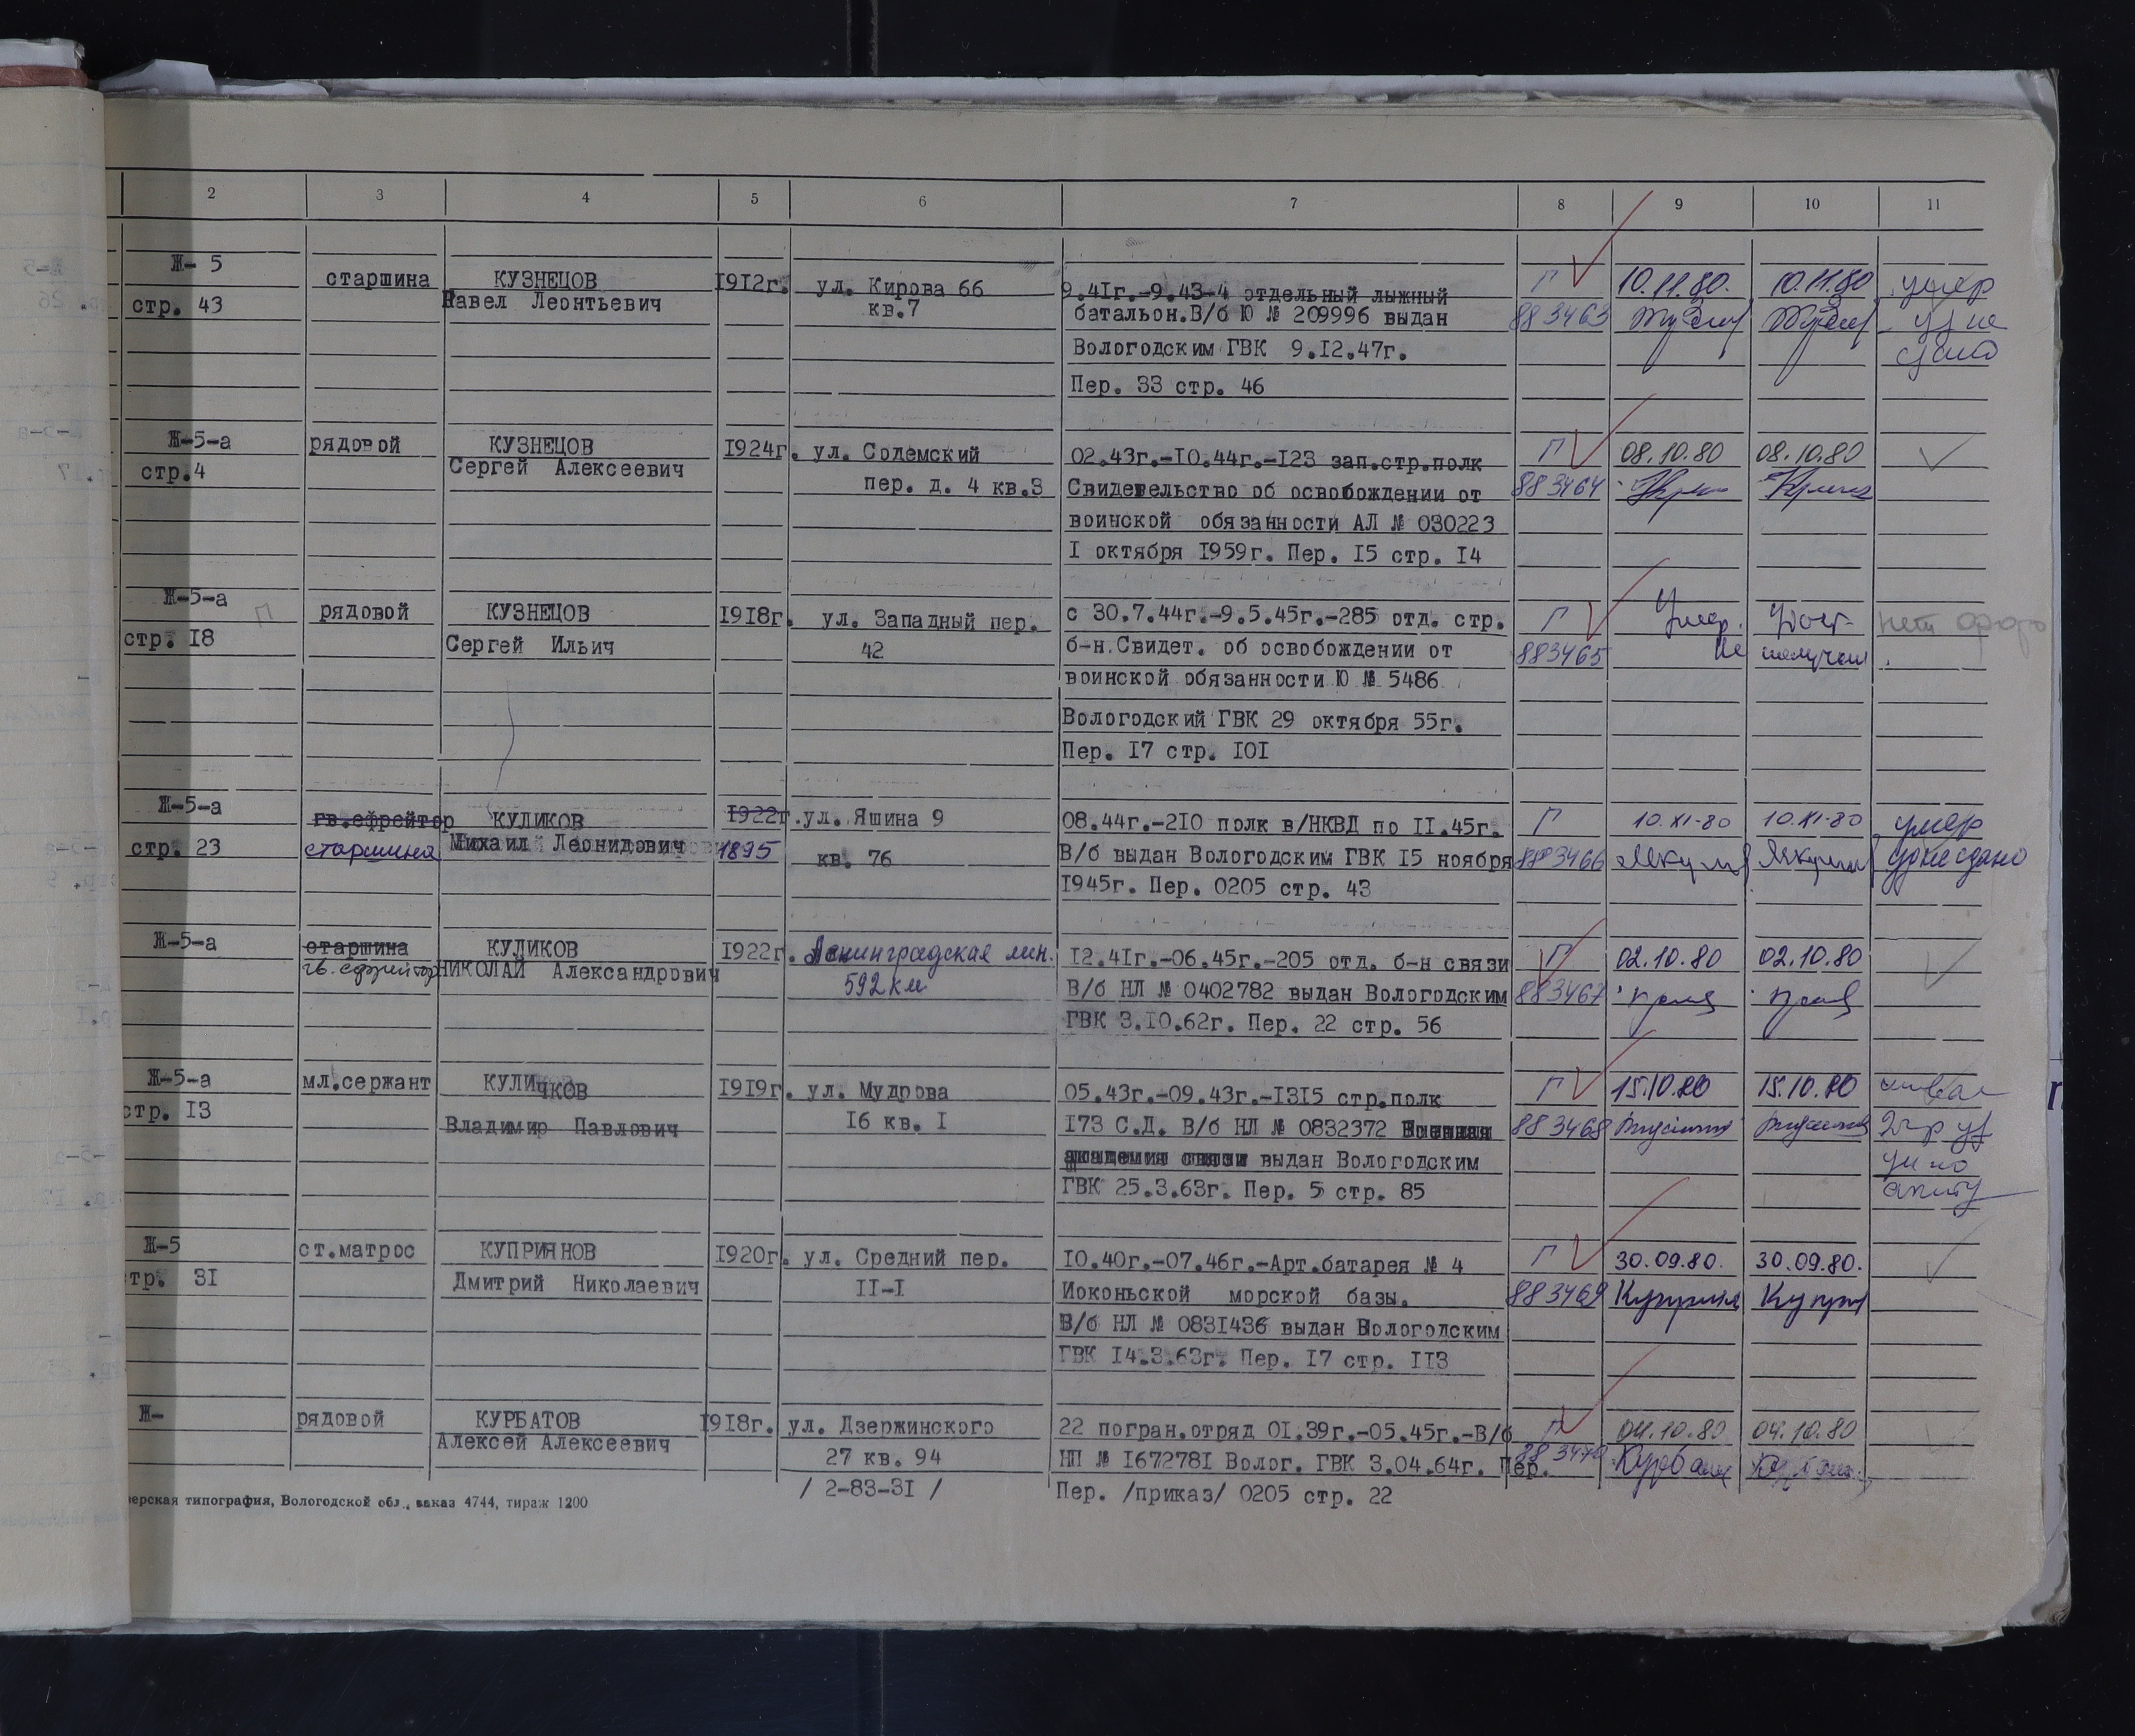 2 3 4 5 6 7 8 9 10 11
Ж- 5 старшина КУЗНЕЦОВ 1912г. ул. Кирова 66 9.41г.-9.43-4 отдельный лыжный Г 10.11.80. 10.11.80 умер
стр. 43 Павел Леонтьевич кв.7 батальон.В/б Ю № 209996 выдан 883463 уд не
Вологодским ГВК 9.12.47г. сдано
Пер. 33 стр. 46
Ж-5-а рядовой КУЗНЕЦОВ 1924г. ул. Содемский 02.43г.-10.44г.-123 зап.стр.полк Г 08.10.80 08.10.80
стр.4 Сергей Алексеевич пер. д. 4 кв.3 Свидетельство об освобождении от 883464
воинской обязанности АЛ № 030223
1 октября 1959г. Пер. 15 стр. 14
Ж-5-а П рядовой КУЗНЕЦОВ 1918г. ул. Западный пер. с 30.7.44г.-9.5.45г.-285 отд. стр. Г Умер. Удост- нет
стр. 18 Сергей Ильич 42 б-н.Свидет. об освобождении от 883465 не получал
воинской обязанности Ю № 5486
Вологодский ГВК 29 октября 55г.
Пер. 17 стр. 101
Ж-5-а гв.ефрейтор КУЛИКОВ 1922г. ул. Яшина 9 08.44г.-210 полк в/НКВД по 11.45г. Г 10.XI-80 10.XI-80 умер
стр. 23 старшина Михаил Леонидович 1895 кв. 76 В/б выдан Вологодским ГВК 15 ноября 883466 уд не сдано
1945г. Пер. 0205 стр. 43
Ж-5-а старшина КУЛИКОВ 1922г. Ленинградская лин. 12.41г.-06.45г.-205 отд. б-н связи Г 02.10.80 02.10.80
гв. ефрейтор НИКОЛАЙ Александрович 592 км В/б НЛ № 0402782 выдан Вологодским 883467
ГВК 3.10.62г. Пер. 22 стр. 56
Ж-5-а мл.сержант КУЛИЧКОВ 1919г. ул. Мудрова 05.43г.-09.43г.-1315 стр.полк Г 15.10.80 15.10.80
стр. 13 Владимир Павлович 16 кв. 1 173 С.Д. В/б НЛ № 0832372 Военная 883468
академия связи выдан Вологодским
ГВК 25.3.63г. Пер. 5 стр. 85
Ж-5 ст.матрос КУПРИЯНОВ 1920г. ул. Средний пер. 10.40г.-07.46г.-Арт.батарея № 4 Г 30.09.80. 30.09.80.
тр. 31 Дмитрий Николаевич 11-1 Иоконьской морской базы. 883469
В/б НЛ № 0831436 выдан Вологодским
ГВК 14.3.63г. Пер. 17 стр. 113
Ж- рядовой КУРБАТОВ 1918г. ул. Дзержинского 22 погран.отряд 01.39г.-05.45г.-В/б Г 04.10.80 04.10.80
Алексей Алексеевич 27 кв. 94 НП № 1672781 Волог. ГВК 3.04.64г. Пер. 883470
/ 2-83-31 / Пер. /приказ/ 0205 стр. 22
ерская типография, Вологодской обл., заказ 4744, тираж 1200